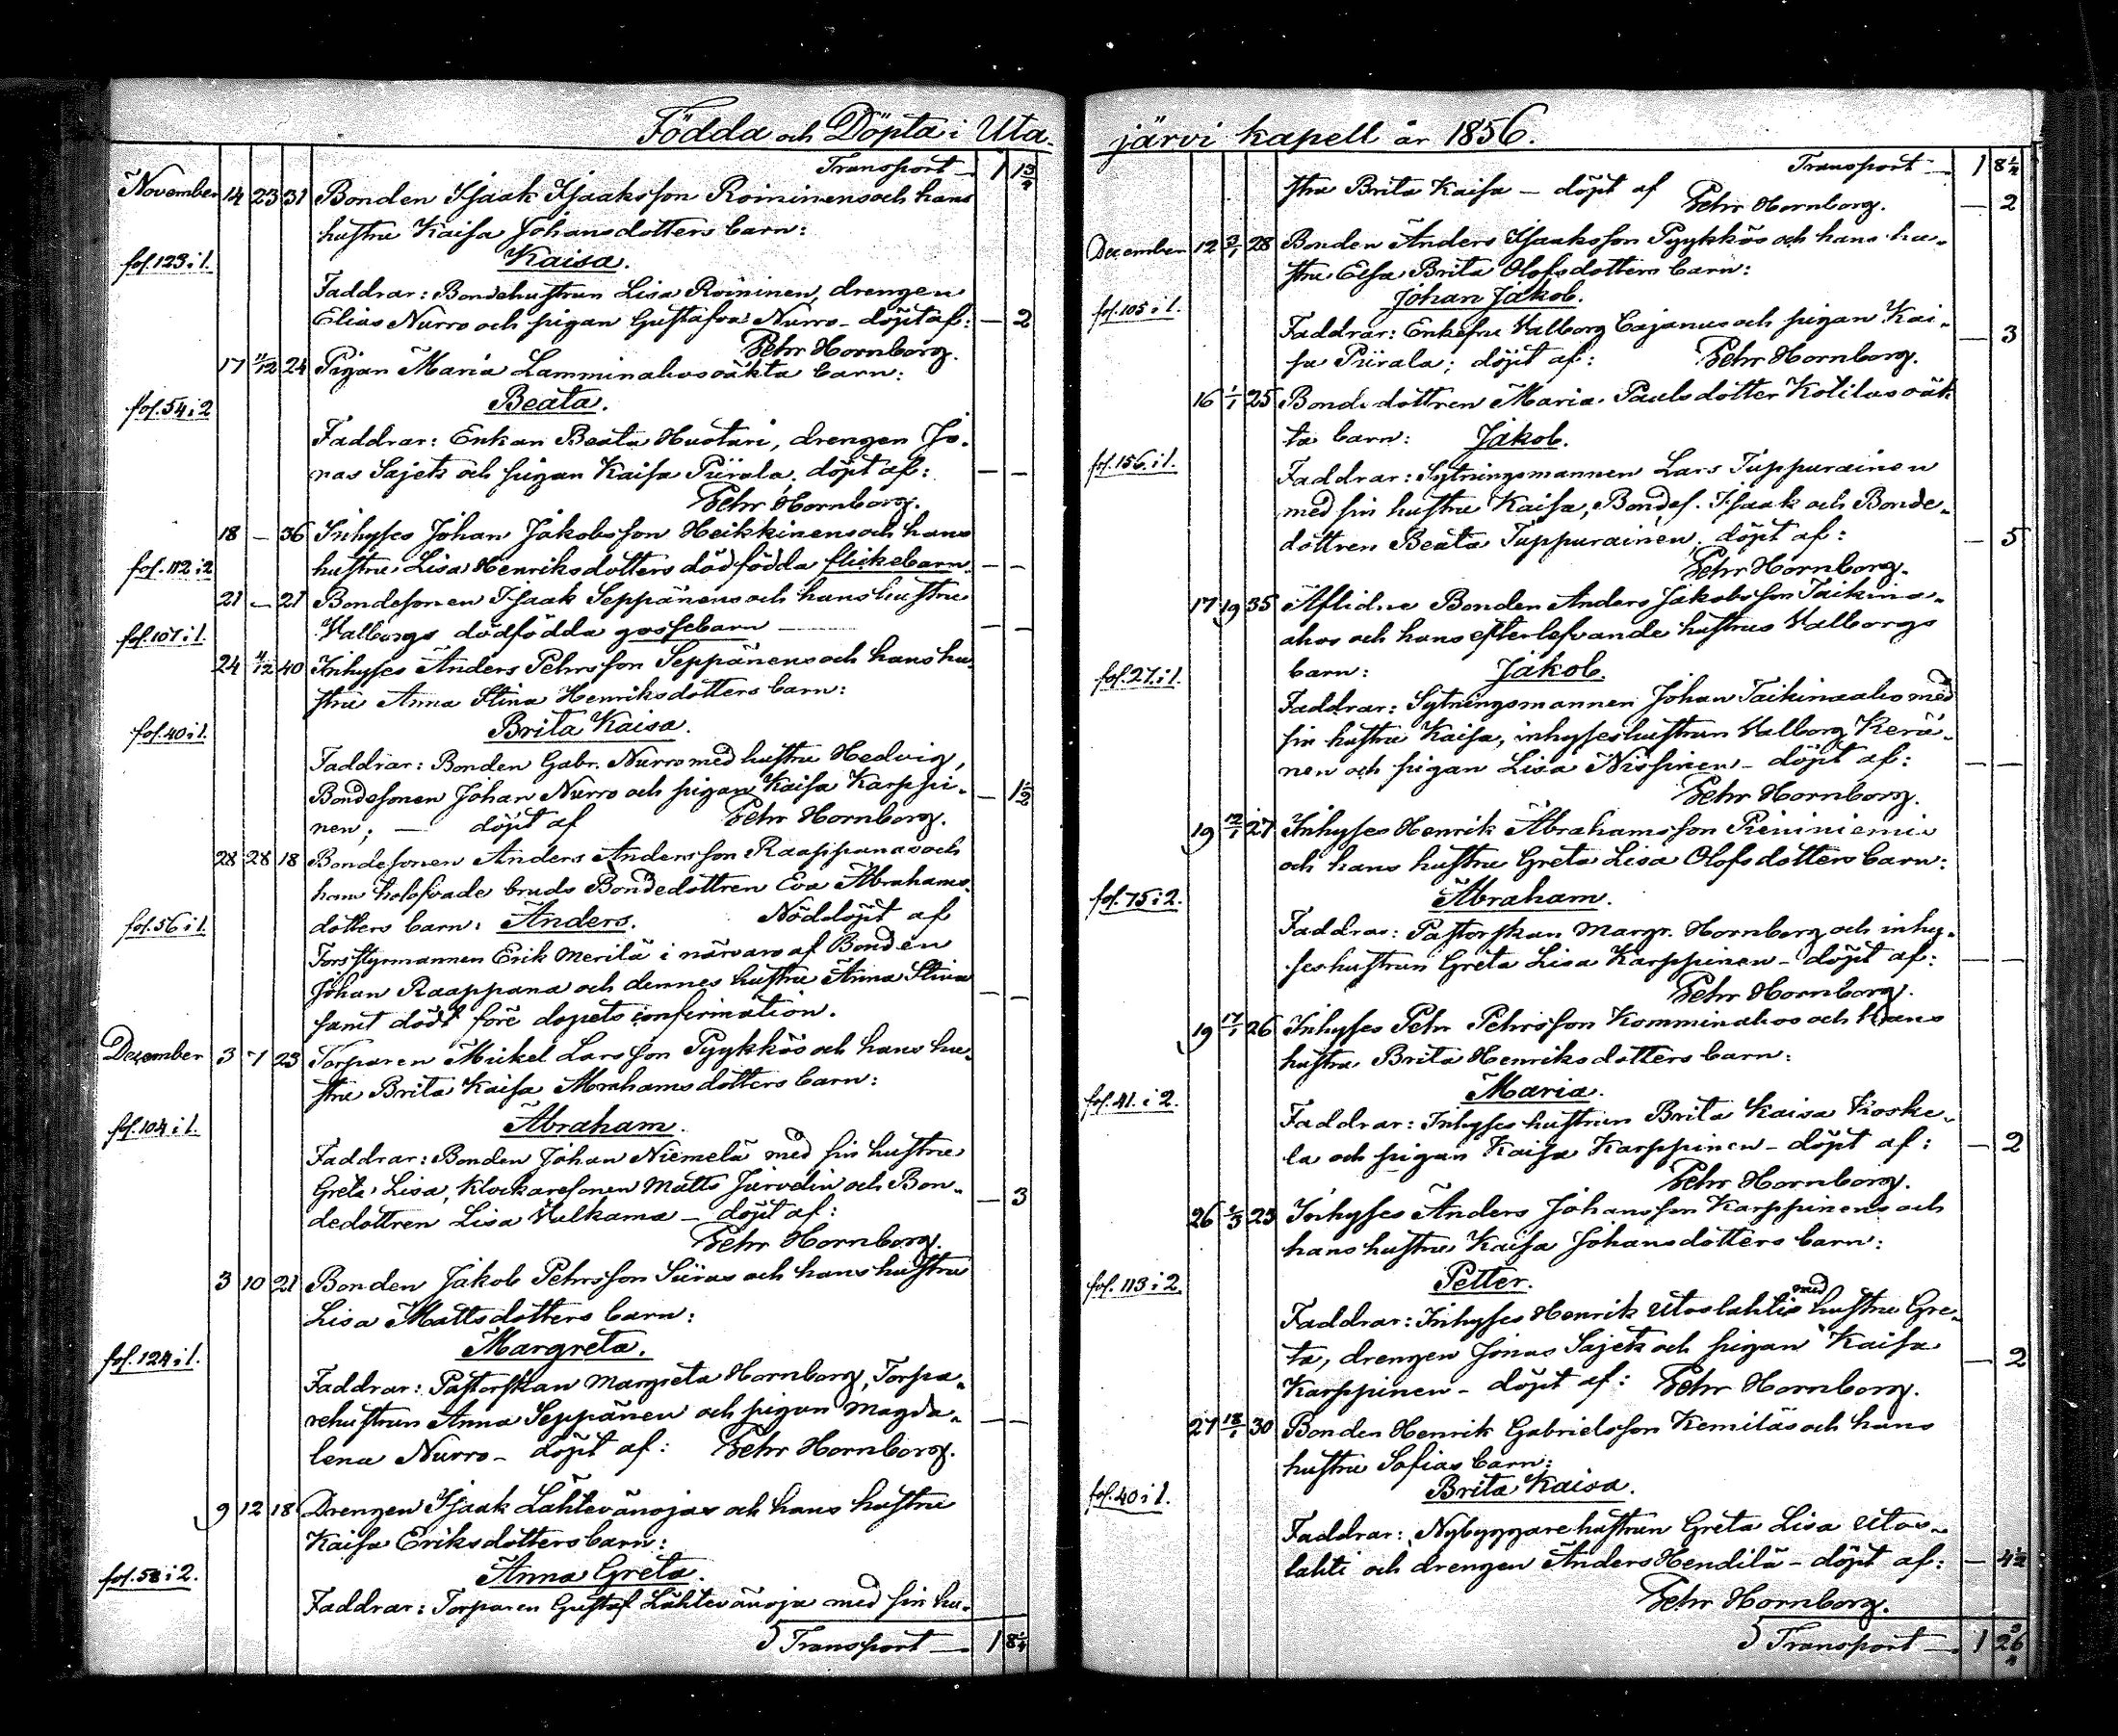 Födda och Döpta i Uta-
Transport — 1 1¾
November 14 23 31 Bonden Isaak Isaaksson Roininens och hans
hustru Kaisa Johansdotters barn:
fol. 123 i 1. Kaisa.
Faddrar: Bondehustrun Lisa Roininen, drengen
Elias Nurro och pigan Gustafva Nurro - döpt af: — 2
Pehr Hornborg.
17 4/12 24 Pigan Maria Lamminahos oäkta barn:
fol. 54 i 2 Beata.
Faddrar: Enkan Beata Huotari, drengen Jo-
nas Sajets och pigan Kaisa Piirala. döpt af: — —
Pehr Hornborg.
18 — 36 Inhyses Johan Jakobsson Heikkinens och hans
fol. 112 i 2 hustru Lisa Henriksdotters dödfödda flickebarn. — —
21 — 21 Bondesonen Isaak Seppänens och hans hustru
fol. 107 i 1. Valborgs dödfödda gossebarn — — —
24 4/12 40 Inhyses Anders Pehrsson Seppänens och hans hu-
stru Anna Stina Henriksdotters barn:
fol. 40 i 1. Brita Kaisa.
Faddrar: Bonden Gabr. Nurro med hustru Hedvig,
Bondesonen Johan Nurro och pigan Kaisa Karppi- — 1½
nen; — döpt af Pehr Hornborg.
28 28 18 Bondesonen Anders Andersson Raappanas och
hans bruds Bondedottren Eva Abrahams-
fol. 56 i 1. dotters barn: Anders. Nöddöpt af
Forsstyrmannen Erik Merilä i närvaro af Bonden
Johan Raappana och dennes hustru Anna Stina — —
samt dödt före dopets confirmation.
December 3 7 23 Torparen Mickel Larsson Pyykkös och hans hu-
stru Brita Kaisa Abrahamsdotters barn:
fol. 104 i 1. Abraham.
Faddrar: Bonden Johan Niemelä med sin hustru
Greta Lisa, Klockaresonen Matts Jurvelin och Bon- — 3
dedottren Lisa Hulkama - döpt af:
Pehr Hornborg.
3 10 21 Bonden Jakob Pehrsson Siiras och hans hustru
Lisa Mattsdotters barn:
fol. 124 i 1. Margreta.
Faddrar: Pastorskan Margreta Hornborg, Torpa-
rehustrun Anna Seppänen och pigan Magda- — —
lena Nurro - döpt af: Pehr Hornborg.
9 12 18 Drengen Isaak Lähtevänojas och hans hustru
Kaisa Eriksdotters barn:
fol. 58 i 2. Anna Greta.
Faddrar: Torparen Gustaf Lähtevänoja med sin hu-
Transport — 1 8¼
järvi kapell år 1856.
Transport — 1 8¼
stru Brita Kaisa — döpt af Pehr Hornborg. — 2
December 12 3/1 28 Bonden Anders Isaaksson Pyykkös och hans hu-
stru Elsa Brita Olofsdotters barn:
fol. 105 i 1. Johan Jakob.
Faddrar: Enkefru Valborg Cajanus och pigan Kai- — 3
sa Piirala; döpt af: Pehr Hornborg.
16 1/1 25 Bondedottren Maria Paulsdotter Kotilas oäk-
ta barn: Jakob.
fol. 156 i 1. Faddrar: Sytningsmannen Lars Tuppurainen
med sin hustru Kaisa, Bondes. Isaak och Bonde-
dottren Beata Tuppurainen. döpt af: — 5
Pehr Hornborg.
17 19 35 Aflidne Bonden Anders Jakobsson Taikina-
ahos och hans efterlefvande hustrus Valborgs
fol. 27. i 1. barn: Jakob.
Faddrar: Sytningsmannen Johan Taikinaaho med
sin hustru Kaisa, inhyseshustrun Valborg Kerä-
nen och pigan Lisa Nissinen - döpt af: — —
Pehr Hornborg.
19 12/1 27 Inhyses Henrik Abrahamsson Pieniniemis
och hans hustru Greta Lisa Olofsdotters barn:
fol. 75 i 2. Abraham.
Faddrar: Pastorskan Margr. Hornborg och inhy-
seshustrun Greta Lisa Karppinen - döpt af: — —
Pehr Hornborg.
19 17/1 26 Inhyses Pehr Pehrsson Komminahos och hans
hustru Brita Henriksdotters barn:
fol. 41. i 2. Maria.
Faddrar: Inhyses hustrun Brita Kaisa Koske-
la och pigan Kaisa Karppinen - döpt af: — 2
Pehr Hornborg.
26 23 Inhyses Anders Johansson Karppinens och
hans hustru Kaisa Johansdotters barn:
fol. 113 i 2. Petter.
Faddrar: Inhyses Henrik Utoslahti med hustru Gre-
ta, drengen Jonas Sajets och pigan Kaisa — 2
Karppinen - döpt af: Pehr Hornborg.
27 18/1 30 Bonden Henrik Gabrielsson Kemiläs och hans
hustru Sofias barn:
fol. 40 i 1. Brita Kaisa.
Faddrar: Nybyggare hustrun Greta Lisa Utos-
lahti och drengen Anders Hendilä - döpt af: — 4½
Pehr Hornborg.
Transport — 1 26